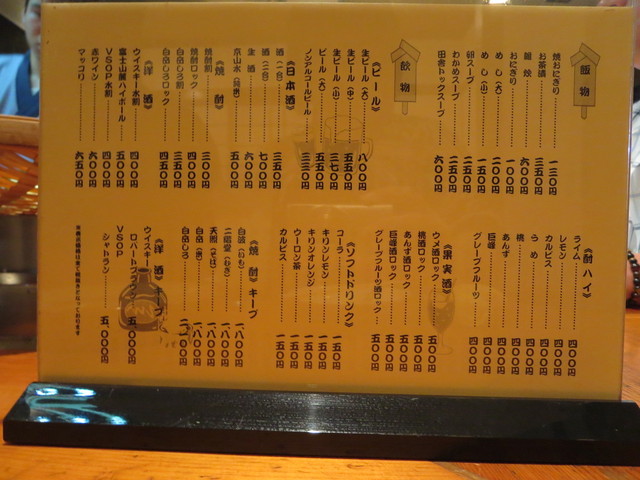 飯物
焼おにぎり 一三〇円
お茶漬 三五〇円
雑炊 六〇〇円
おにぎり 一〇〇円
めし(大) 二〇〇円
めし(小) 一五〇円
卵スープ 二五〇円
わかめスープ 二五〇円
田舎トックスープ 六〇〇円
飲物
《ビール》
生ビール(大) 八〇〇円
生ビール(中) 五五〇円
生ビール(小) 三七〇円
ビール(大) 五五〇円
ノンアルコールビール 三三〇円
《日本酒》
酒(一合) 三五〇円
酒(二合) 七〇〇円
生酒 六〇〇円
京山水 五五〇円
《焼酎》
焼酎割 三〇〇円
焼酎ロック 三五〇円
白岳しろ割 三五〇円
白岳しろロック 四五〇円
《洋酒》
ウイスキー水割 四〇〇円
富士山麓ハイボール 五〇〇円
VSOP水割 四〇〇円
赤ワイン 六〇〇円
マッコリ 六〇〇円
《酎ハイ》
ライム 四〇〇円
レモン 四〇〇円
カルピス 四〇〇円
うめ 四〇〇円
桃 四〇〇円
あんず 四〇〇円
巨峰 四〇〇円
グレープフルーツ 四〇〇円
《果実酒》
ウメ酒ロック 五〇〇円
桃酒ロック 五〇〇円
あんず酒ロック 五〇〇円
巨峰酒ロック 五〇〇円
グレープフルーツ酒ロック 五〇〇円
《ソフトドリンク》
コーラ 一五〇円
キリンレモン 一五〇円
キリンオレンジ 一五〇円
ウーロン茶 一五〇円
カルピス 一五〇円
《焼酎》キープ
白波(いも) 一、八〇〇円
二階堂(むぎ) 一、八〇〇円
天照(そば) 一、八〇〇円
白岳(米) 一、八〇〇円
白岳しろ
《洋酒》キープ
ウイスキー
ロバートブラウン 五、〇〇〇円
VSOP
シャトラン 五、〇〇〇円